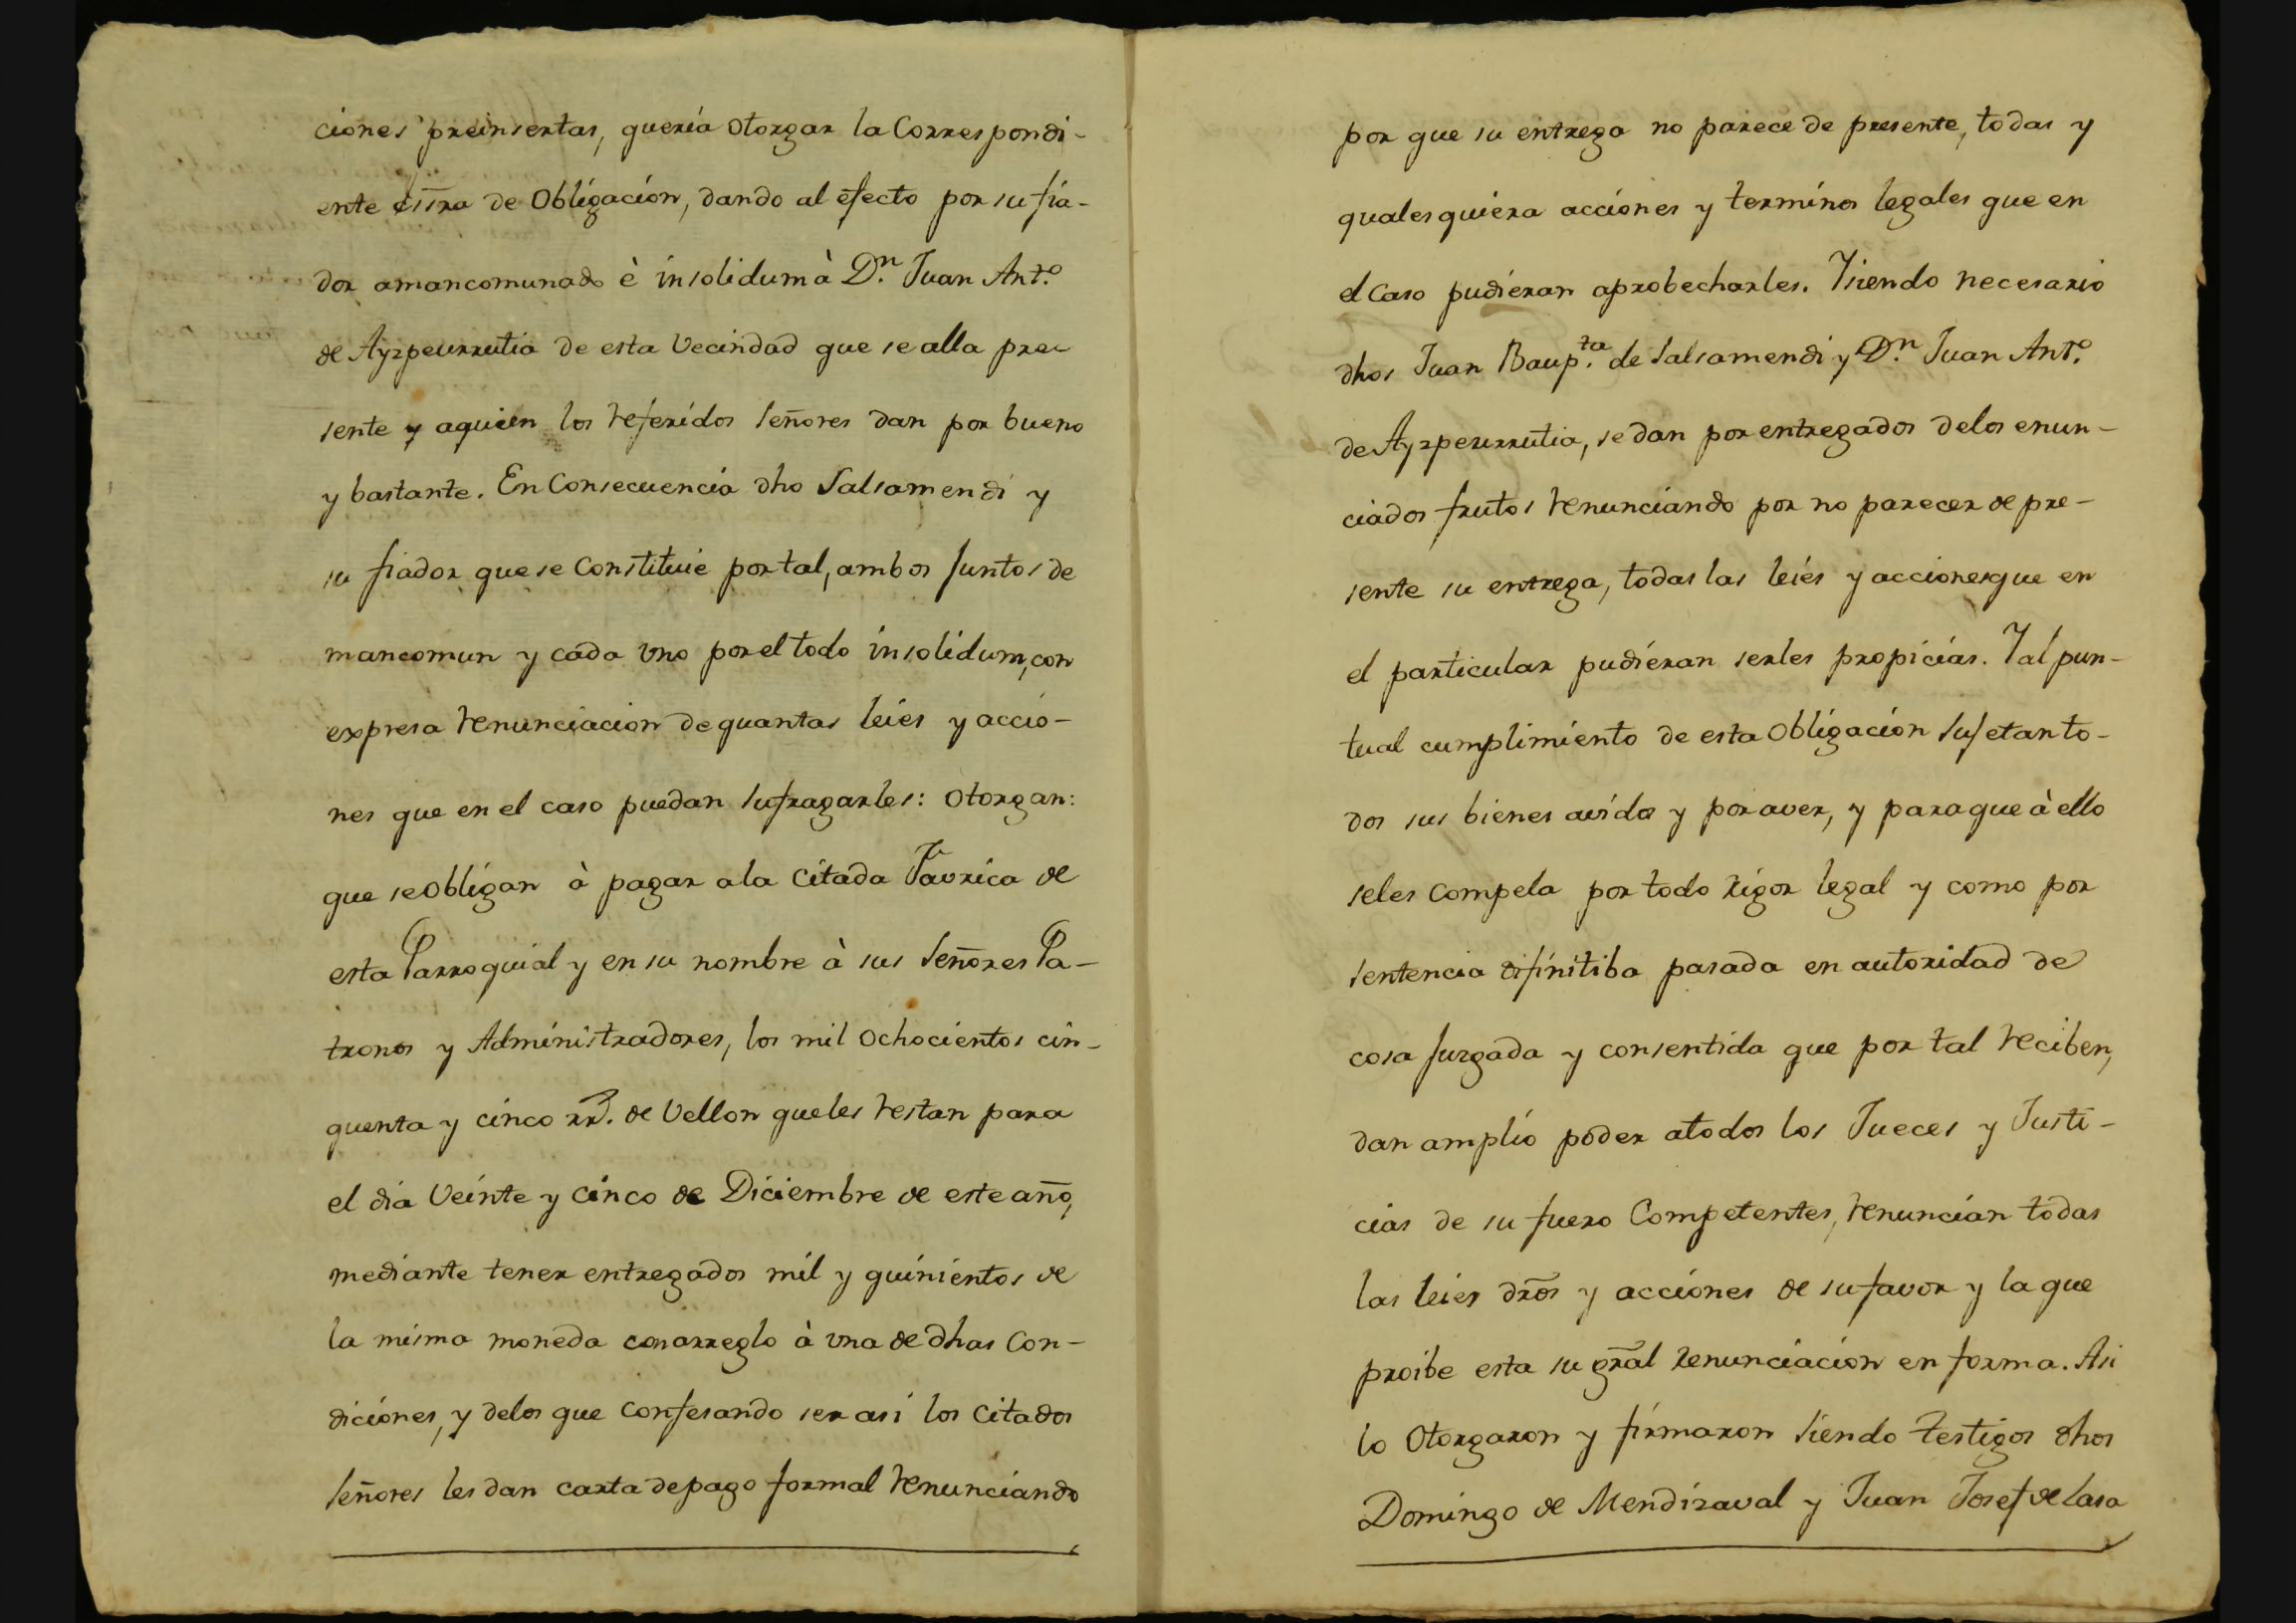 ciones preinsertas, queria otorgar la Correspondi-
ente essra de Obligación, dando al efecto por su fia-
dor amancomunado è insolidum à Dn. Juan Anto.
de Ayzpeurrutia de esta Vecindad que se alla pre-
sente y aquien los referidos Señores dan por bueno
y bastante. En Consecuencia dho Salsamendi y
su fiador que se Constituie por tal, ambos Juntos de
mancomun y cada vno por el todo insolidum, con
expresa renunciacion de quantas leies y accio-
nes que en el caso puedan Sufragarles: otorgan:
que se obligan à pagar ala Citada Favrica de
esta Parroquial y en su nombre à sus Señores Pa-
tronos y Administradores, los mil ochocientos cin-
quenta y cinco rrs. de Vellon que les restan para
el dia Veinte y cinco de Diciembre de este año,
mediante tener entregados mil y quinientos de
la misma moneda con arreglo à vna de dhas Con-
diciones, y delos que Confesando ser asi los Citados
Señores les dan carta de pago formal renunciando
por que su entrega no parece de presente, todas y
quales quiera acciones y terminos legales que en
el Caso pudieran aprobecharles. Y siendo necesario
dhos Juan Baupta. de Salsamendi y Dn. Juan Anto.
de Ayzpeurrutia, se dan por entregados delos enun-
ciados frutos renunciando por no parecer de pre-
sente su entrega, todas las leies y acciones que en
el particular pudieran serles propicias. Y al pun-
tual cumplimiento de esta Obligación Sujetan to-
dos sus bienes avidos y por aver, y para que à ello
seles Compela por todo rigor legal y como por
Sentencia difinitiba pasada en autoridad de
cosa Juzgada y consentida que por tal reciben,
dan amplio poder atodos los Jueces y Justi-
cias de su fuero Competentes, renuncian todas
las leies dros y acciones de su favor y la que
proibe esta su gral renunciacion en forma. Asi
lo Otorgaron y firmaron Siendo testigos dhos
Domingo de Mendizaval y Juan Josef de Lasa